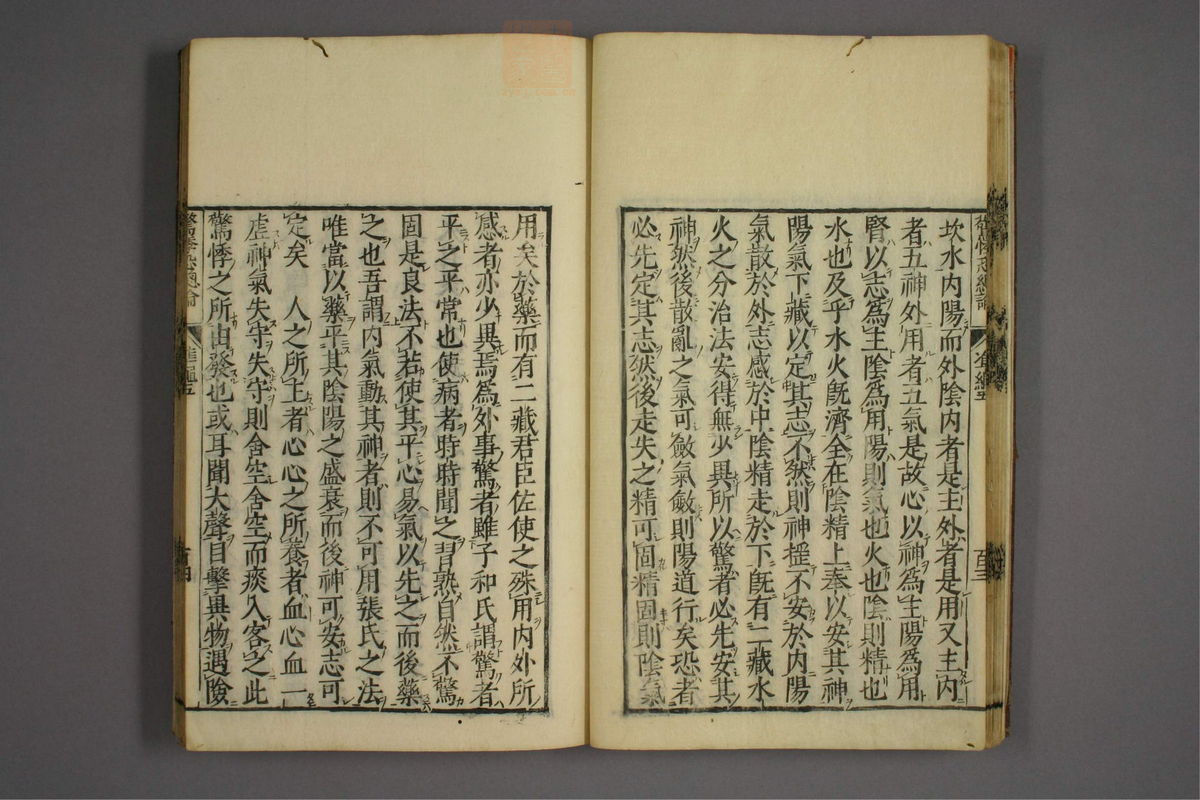 坎水内陽而外陰内者是主外者是用又主内
者五神外用者五氣是故心以神為主陽為用
腎以志為主陰為用陽則氣也火也陰則精也
水也及乎水火既濟全在陰精上奉以安其神
陽氣下藏以定其志不然則神搖不安於内陽
氣散於外志感於中陰精走於下既有二藏水
火之分治法安得無少異所以驚者必先安其
神然後散亂之氣可斂氣斂則陽道行矣恐者
必先定其志然後走失之精可固精固則陰氣
用矣於藥而有二藏君臣佐使之殊用内外所
感者亦少異焉為外事驚者雖子和氏謂驚者
平之平常也使病者時時聞之習熟自然不驚
固是良法不若使其平心易氣以先之而後藥
之也吾謂内氣動其神者則不可用張氏之法
唯當以藥平其陰陽之盛衰而後神可安志可
定矣　人之所主者心心之所養者血心血一
虛神氣失守失守則舍空舍空而痰入客之此
驚悸之所由發也或耳聞大聲目擊異物遇險
驚悸恐總論